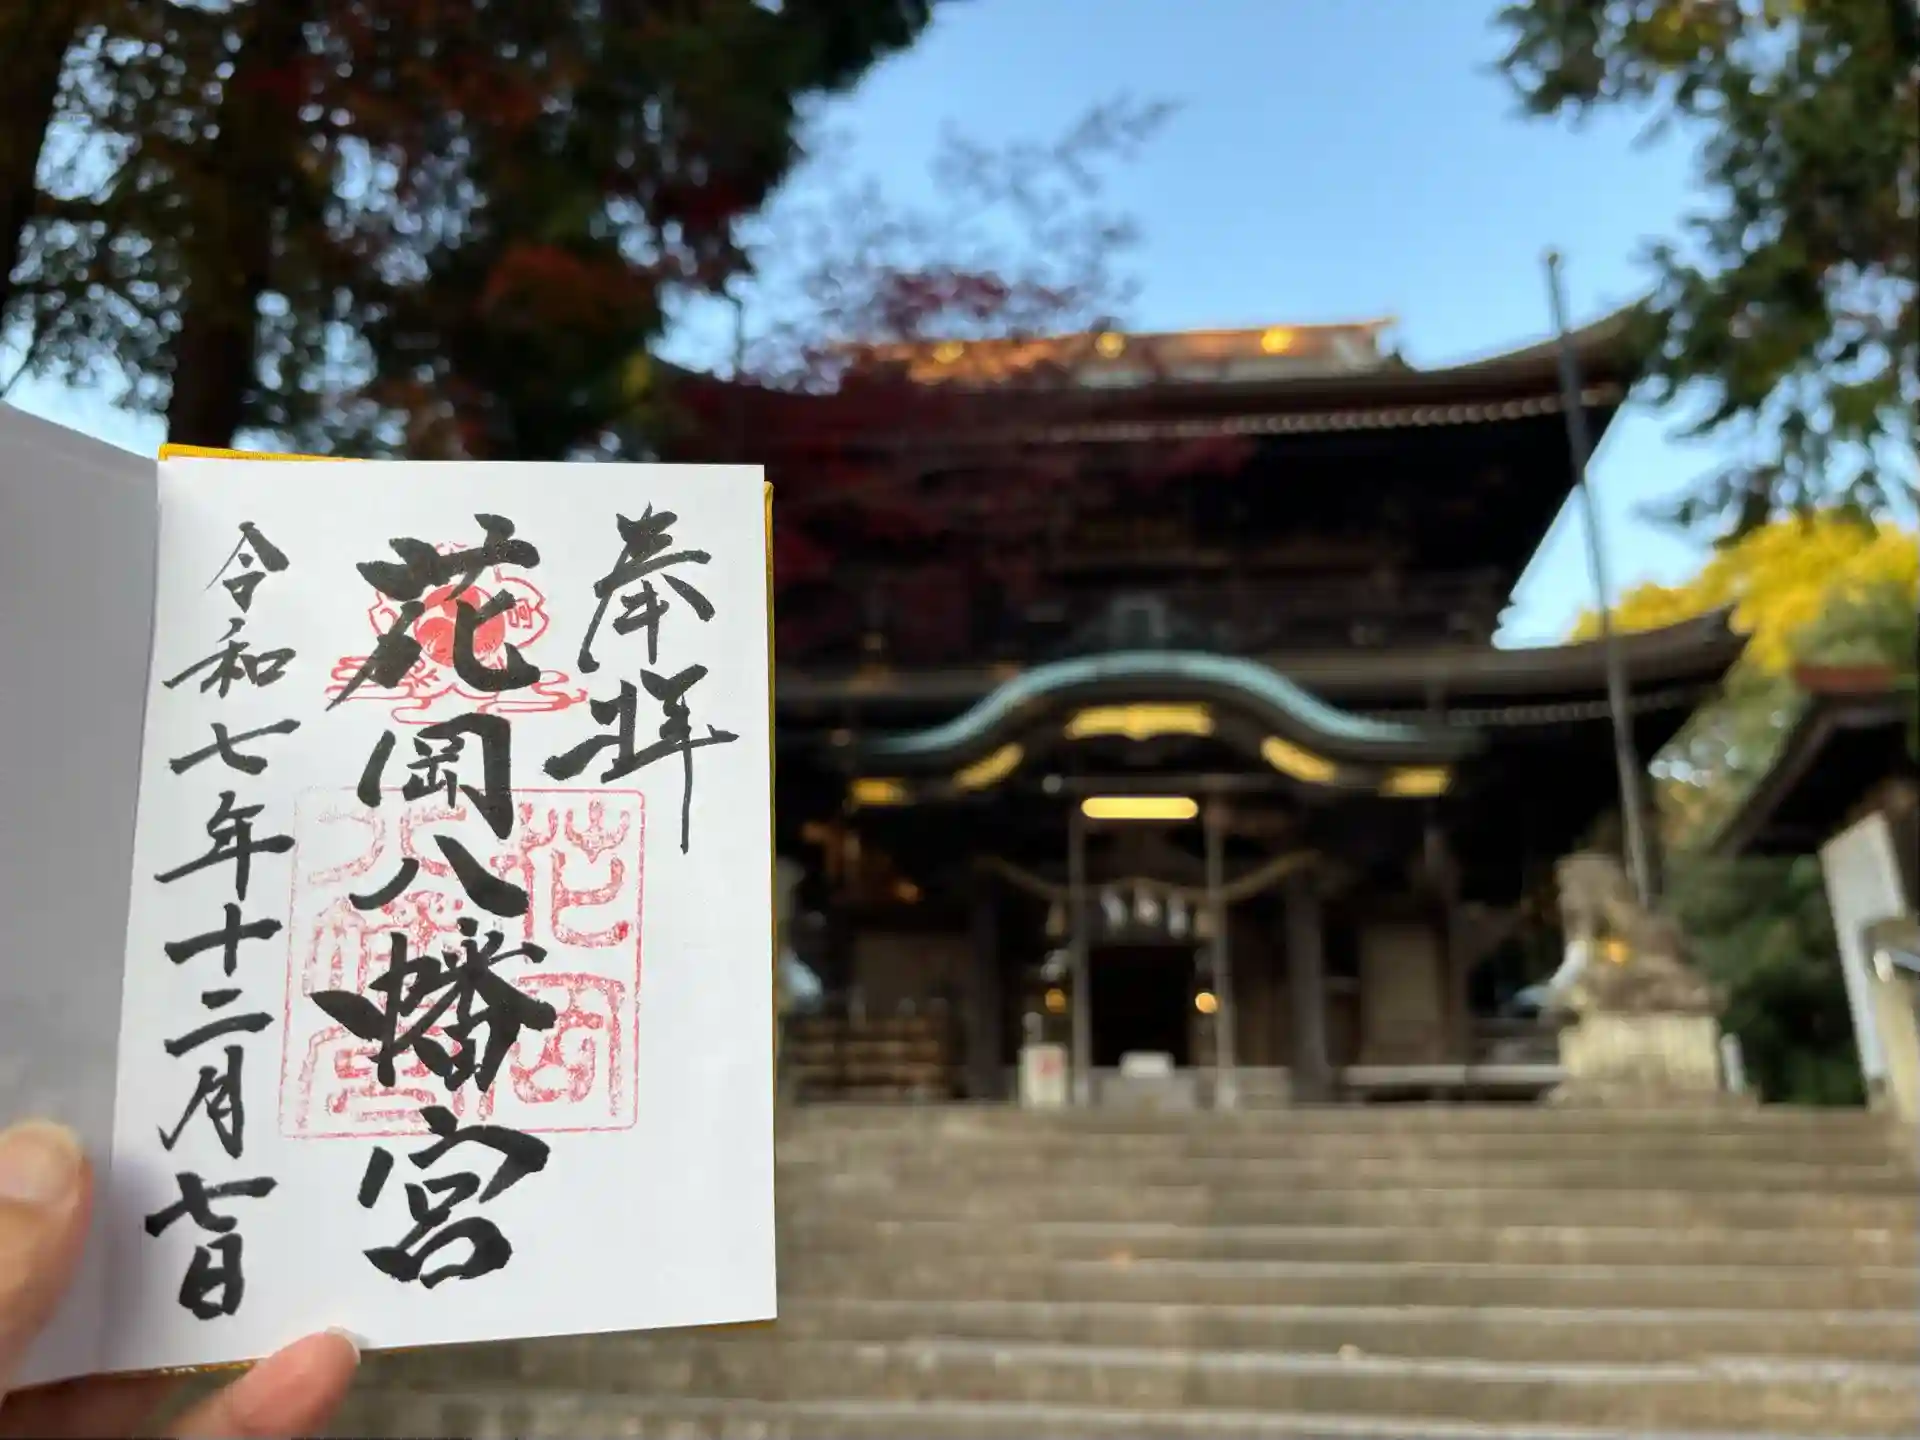 奉拝
花岡八幡宮
令和七年十二月七日
花岡八幡宮